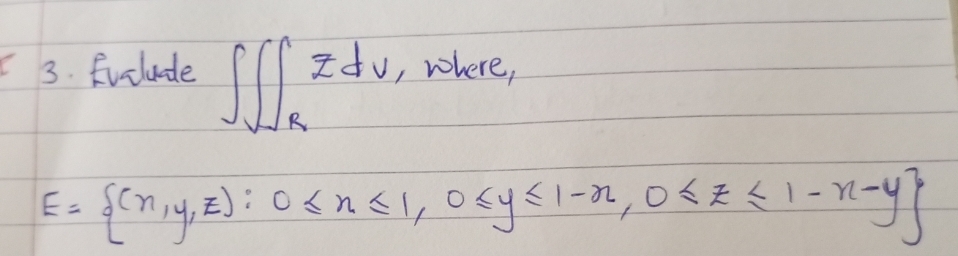 3. Evaluate ∭_R z dv, where,
E = {(x, y, z) : 0 ≤ x ≤ 1, 0 ≤ y ≤ 1-x, 0 ≤ z ≤ 1-x-y}